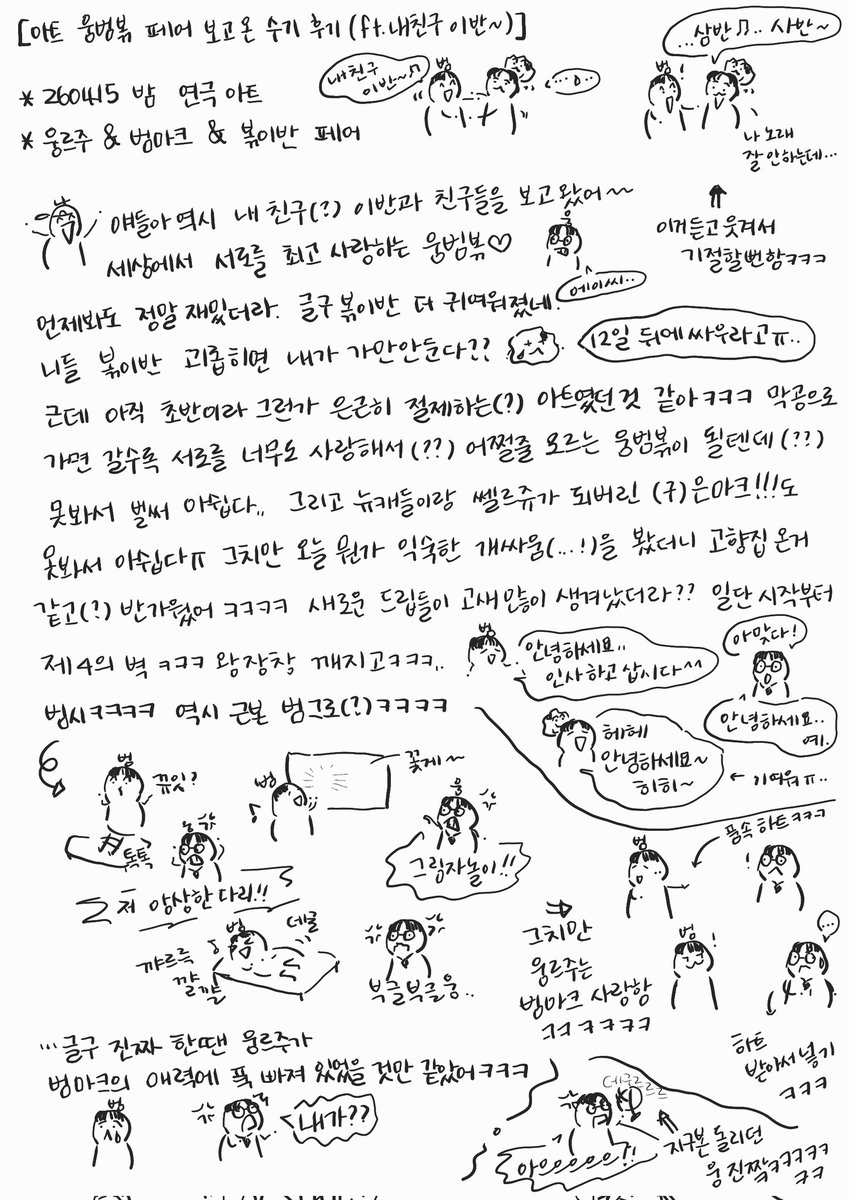 [아트 웅범뽂 페어 보고 온 수기 후기 (ft.내친구 이반~)]
* 260415 밤 연극 아트
* 웅르주 & 범마크 & 뽂이반 페어
내친구 이반~♫
범
...ㅇ..
...삼반♫.. 사반~
범
나 노래 잘 안하는데...
이거 듣고 웃겨서
기절할뻔함ㅋㅋㅋ
얘들아 역시 내 친구(?) 이반과 친구들을 보고 왔어~~
세상에서 서로를 최고 사랑하는 웅범뽂♡
웅
에이씨..
언제봐도 정말 재밌더라. 글구 뽂이반 더 귀여워졌네.
니들 뽂이반 괴롭히면 내가 가만안둔다??
12일 뒤에 싸우라고ㅠ..
근데 아직 초반이라 그런가 은근히 절제하는(?) 아트였던 것 같아ㅋㅋㅋ 막공으로
가면 갈수록 서로를 너무도 사랑해서(??) 어쩔줄 모르는 웅범뽂이 될텐데(??)
못봐서 벌써 아쉽다.. 그리고 뉴캐들이랑 쎌르쥬가 되버린 (구)은마크!!!도
못봐서 아쉽다ㅠ 그치만 오늘 뭔가 익숙한 개싸움(...!)을 봤더니 고향집 온거
같고(?) 반가웠어ㅋㅋㅋㅋ 새로운 드립들이 고새 많이 생겨났더라?? 일단 시작부터
제4의 벽ㅋㅋㅋ 왕장창 깨지고ㅋㅋㅋ..
범시ㅋㅋㅋㅋ 역시 근본 범그로(?)ㅋㅋㅋㅋ
범
안녕하세요..
인사하고 삽시다^^
아맞다!
안녕하세요..
예.
헤헤
안녕하세요~
히히~
← 기여워ㅠ..
범
뀨잇?
톡톡
웅
저 앙상한 다리!!
범
꽃게~
웅
그림자놀이!!
범
데굴
꺄르륵
꺌
꺌
부글부글 웅..
품속 하트ㅋㅋㅋ
범
그치만
웅르주는
범마크 사랑함
ㅋㅋㅋㅋㅋㅋ
범
...
하트
받아서 넣기
ㅋㅋㅋ
...글구 진짜 한땐 웅르주가
범마크의 매력에 푹 빠져 있었을 것만 같았어ㅋㅋㅋ
범
내가??
데구르르르
아으으으으으!!
지구본 돌리던
웅 진짴ㅋㅋㅋㅋㅋ
ㅋㅋ